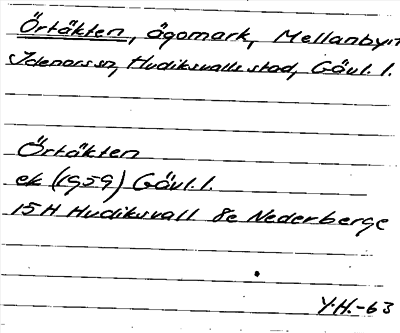 Örtäkten, ägomark, Mellanbyn
Idenors sn, Hudiksvalls stad, Gävl. l.
Örtäkten
ek (1959) Gävl. l.
15H Hudiksvall 8e Nederberge
Y.H.-63